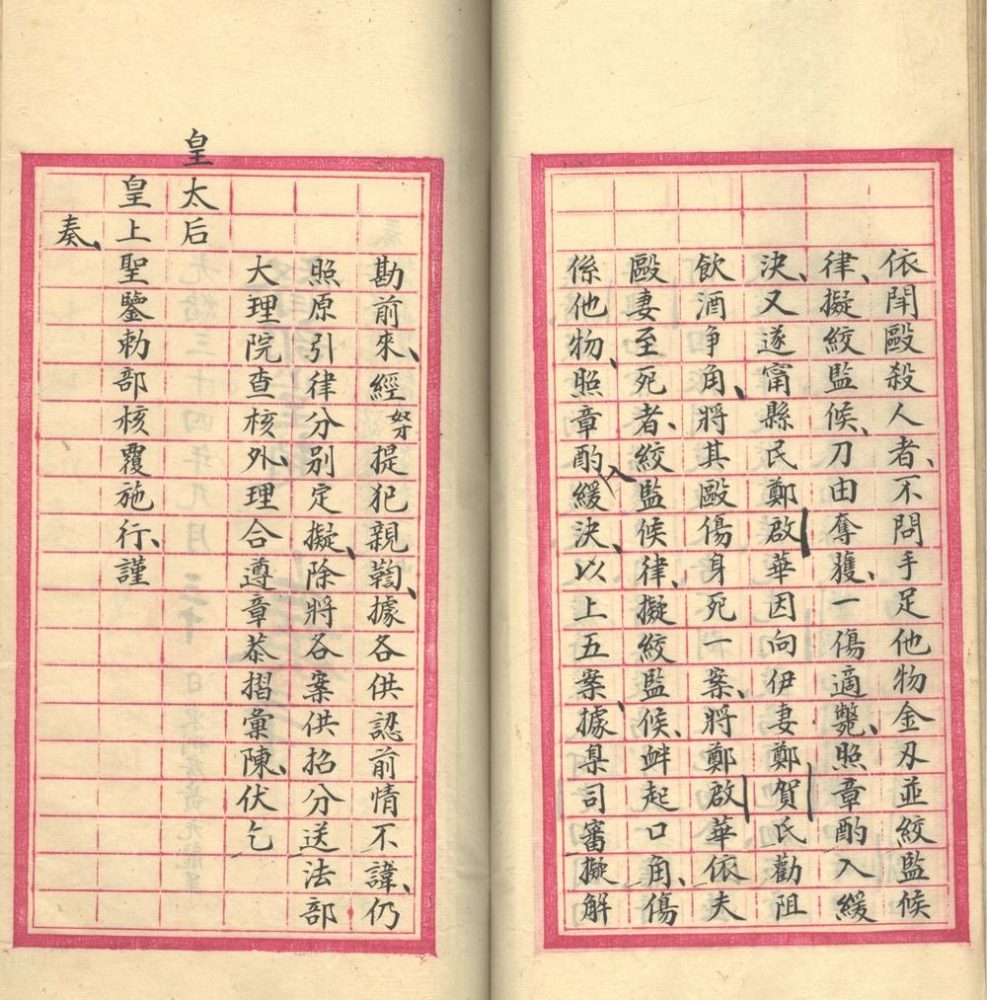 依閗毆殺人者、不問手足他物金刃並絞監候
律、擬絞監候、刀由奪獲、一傷適斃、照章酌入緩
決、又遂甯縣民鄭啟華因向伊妻鄭賀氏勸阻
飲酒爭角、將其毆傷身死一案、將鄭啟華依夫
毆妻至死者、絞監候律、擬絞監候、衅起口角、傷
係他物、照章酌入緩決、以上五案、據臬司審擬解
勘前來、經奴才提犯親鞫、據各供認前情不諱、仍
照原引律分別定擬、除將各案供招分送法部
大理院查核外、理合遵章恭摺彙陳、伏乞
皇太后
皇上聖鑒勅部核覆施行、謹
奏、